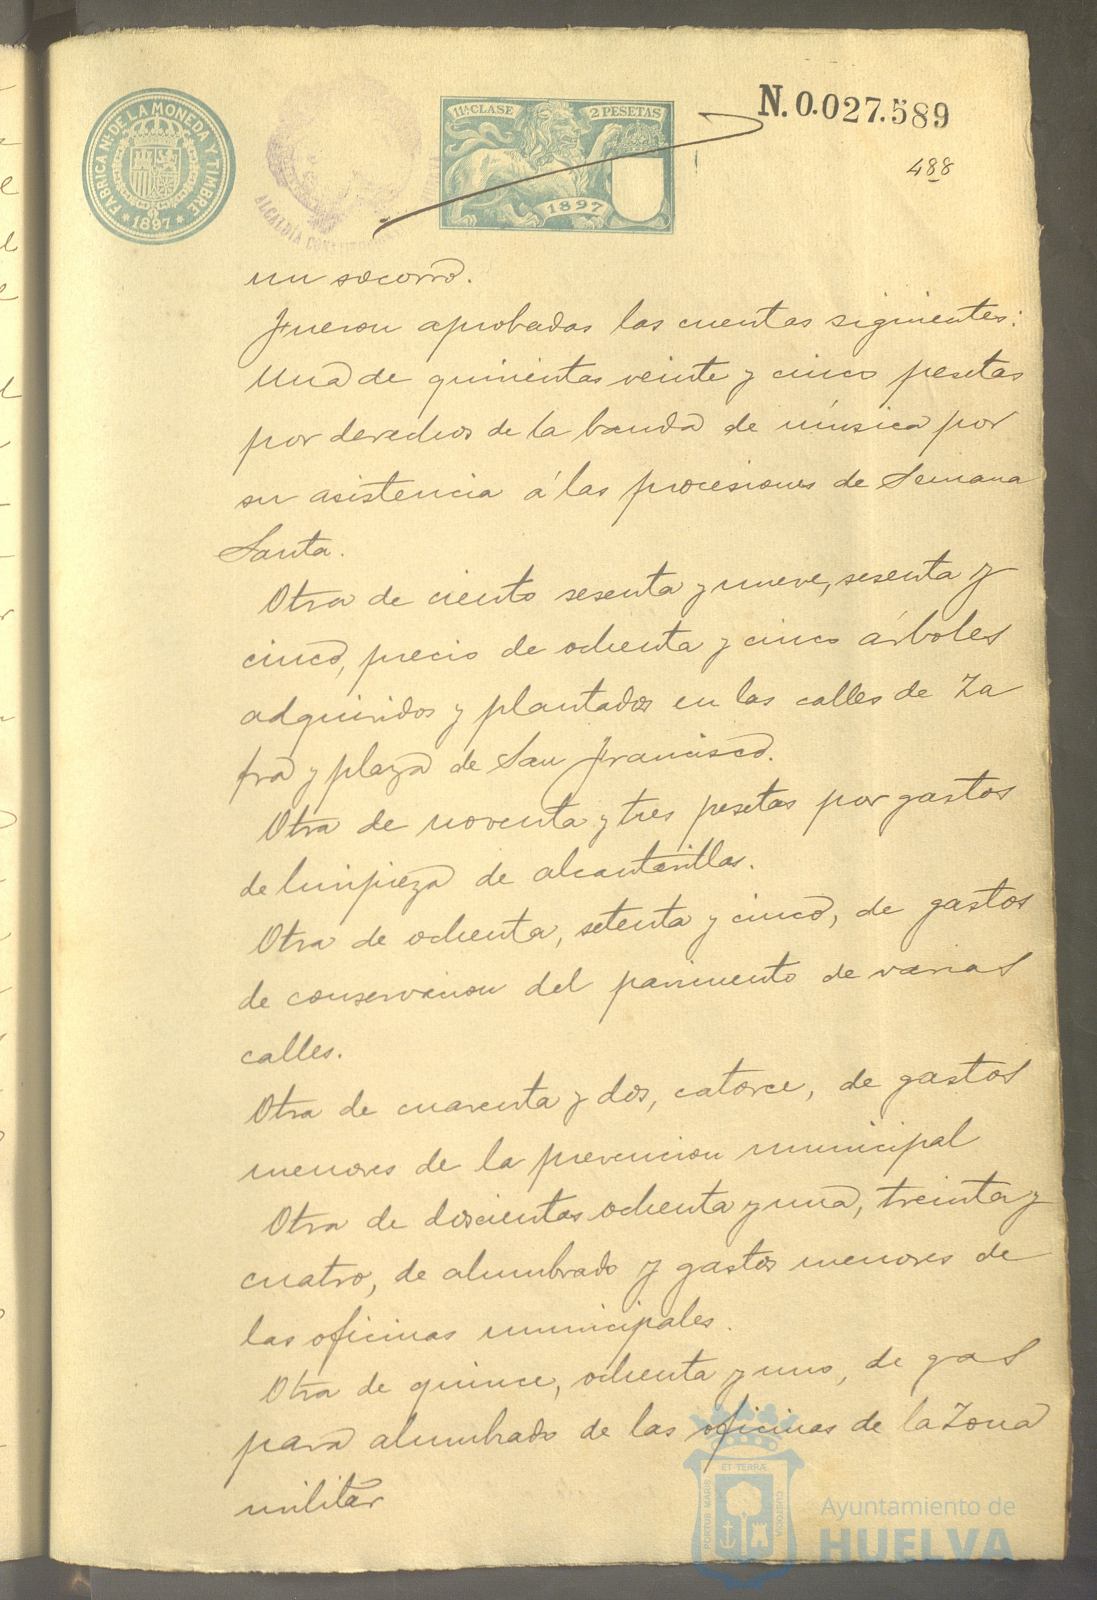 FABRICA NL DE LA MONEDA Y TIMBRE
* 1897 *
ALCALDÍA
11ª CLASE
2 PESETAS
1897
N. 0.027.589
488
un socorro.
Fueron aprobadas las cuentas siguientes:
Una de quinientas veinte y cinco pesetas
por derechos de la banda de música por
su asistencia á las procesiones de Semana
Santa.
Otra de ciento sesenta y nueve, sesenta y
cinco, precio de ochenta y cinco árboles
adquiridos y plantados en las calles de Za
fra y plaza de San Francisco.
Otra de noventa y tres pesetas por gastos
de limpieza de alcantarillas.
Otra de ochenta, setenta y cinco, de gastos
de conservacion del pavimento de varias
calles.
Otra de cuarenta y dos, catorce, de gastos
menores de la prevencion municipal
Otra de doscientas ochenta y una, treinta y
cuatro, de alumbrado y gastos menores de
las oficinas municipales.
Otra de quince, ochenta y uno, de gas
para alumbrado de las oficinas de la Zona
militar
PORTUS MARIS
ET TERRÆ
CUSTODIA
Ayuntamiento de
HUELVA